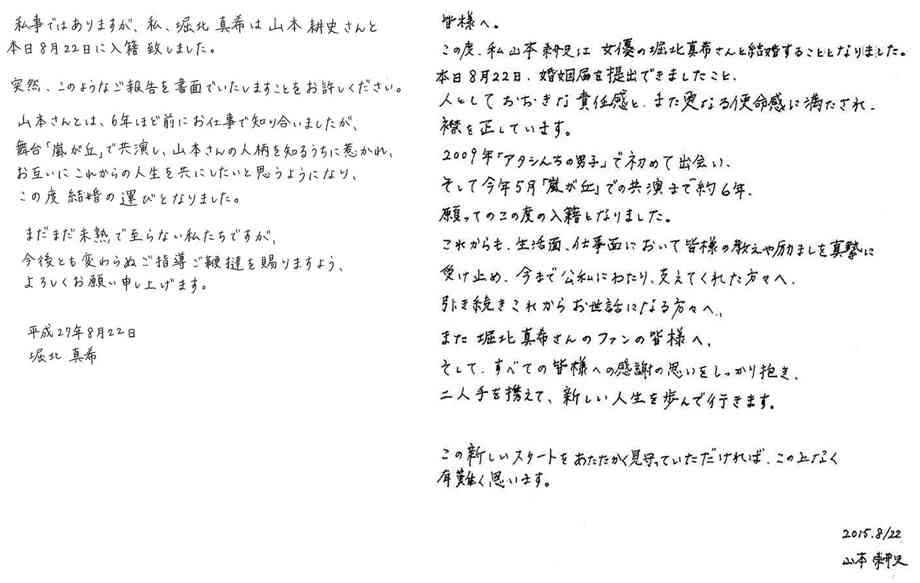 私事ではありますが、私、堀北真希は山本耕史さんと
本日8月22日に入籍致しました。
突然、このようなご報告を書面でいたしますことをお許しください。
山本さんとは、6年ほど前にお仕事で知り合いましたが、
舞台「嵐が丘」で共演し、山本さんの人柄を知るうちに惹かれ、
お互いにこれからの人生を共にしたいと思うようになり、
この度結婚の運びとなりました。
まだまだ未熟で至らない私たちですが、
今後とも変わらぬご指導ご鞭撻を賜りますよう、
よろしくお願い申し上げます。
平成27年8月22日
堀北 真希
皆様へ。
この度、私山本耕史は女優の堀北真希さんと結婚することとなりました。
本日8月22日、婚姻届を提出できましたこと、
人としておおきな責任感と、また更なる使命感に満たされ、
襟を正しています。
2009年「アタシんちの男子」で初めて出会い、
そして今年5月「嵐が丘」での共演まで約6年、
願ってのこの度の入籍となりました。
これからも、生活面、仕事面において皆様の教えや励ましを真摯に
受け止め、今まで公私にわたり、支えてくれた方々へ、
引き続きこれからお世話になる方々へ、
また堀北真希さんのファンの皆様へ、
そして、すべての皆様への感謝の思いをしっかり抱き、
二人手を携えて、新しい人生を歩んで行きます。
この新しいスタートをあたたかく見守っていただければ、この上なく
有難く思います。
2015.8/22
山本 耕史